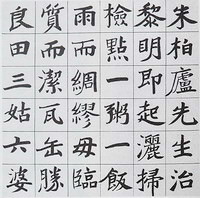 朱柏廬先生治
黎明即起灑掃
檢點一粥一飯
雨而綢繆毋臨
質而潔瓦缶勝
良田三姑六婆